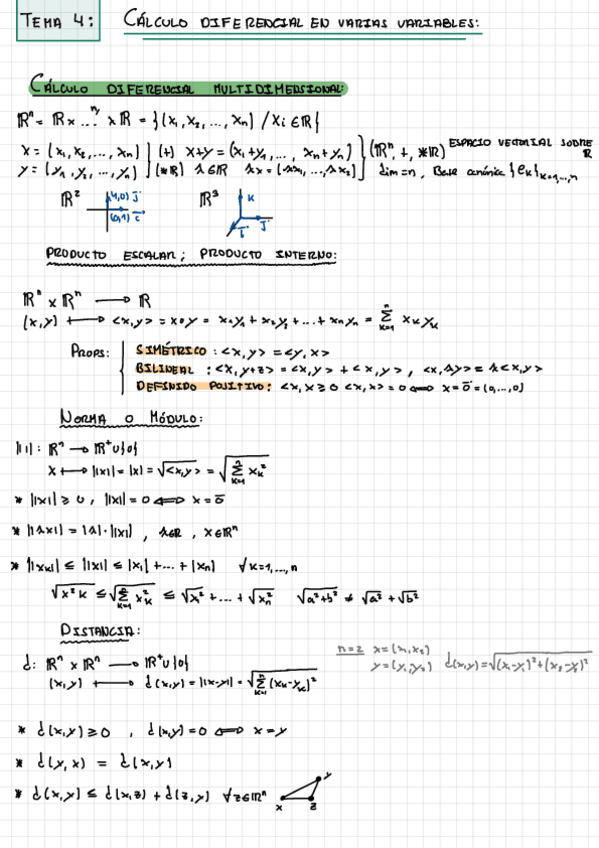 TEMA 4: CÁLCULO DIFERENCIAL EN VARIAS VARIABLES:
CÁLCULO DIFERENCIAL MULTIDIMENSIONAL:
ℝⁿ = ℝ x ...ⁿ⁾ x ℝ = {(x₁, x₂, ..., xₙ) / xᵢ ∈ ℝ}
x = (x₁, x₂, ..., xₙ) (+) x+y = (x₁+y₁, ..., xₙ+yₙ) (ℝⁿ, +, *ℝ) ESPACIO VECTORIAL SOBRE ℝ
y = (y₁, y₂, ..., yₙ) (*ℝ) λ∈ℝ λx = (λx₁, ..., λx₂) dim=n, Base canónica {eₖ}ₖ₌₁,...,ₙ
ℝ² (1,0) j (0,1) i ℝ³ k j i
PRODUCTO ESCALAR; PRODUCTO INTERNO:
ℝⁿ x ℝⁿ ⟶ ℝ
(x,y) ⟼ <x,y> = x∘y = x₁y₁ + x₂y₂ + ... + xₙyₙ = Σₖ₌₁ⁿ xₖyₖ
PROPS: SIMÉTRICO: <x,y> = <y,x>
BILINEAL: <x,y+z> = <x,y> + <x,y>, <x,λy> = λ<x,y>
DEFINIDO POSITIVO: <x,x ≥ 0 <x,x> = 0 ⟺ x = 0̄ = (0,...,0)
NORMA O MÓDULO:
||·|| : ℝⁿ ⟶ ℝ⁺∪{0}
x ⟼ ||x|| = |x| = √<x,y> = √Σₖ₌₁ⁿ xₖ²
* ||x|| ≥ 0, ||x|| = 0 ⟺ x = 0̄
* ||λx|| = |λ|·||x||, λ∈ℝ, x∈ℝⁿ
* ||xₖ|| ≤ ||x|| ≤ |x₁| + ... + |xₙ| ∀k=1,...,n
√x²k ≤ √Σₖ₌₁ⁿ x²ₖ ≤ √x₁² + ... + √xₙ² √a²+b² ≠ √a² + √b²
DISTANCIA:
d: ℝⁿ x ℝⁿ ⟶ ℝ⁺∪{0} n=2 x=(x₁,x₂)
(x,y) ⟼ d(x,y) = ||x-y|| = √Σₖ₌₁ⁿ (xₖ-yₖ)² y=(y₁,y₂) d(x,y)=√(x₁-y₁)²+(x₂-y₂)²
* d(x,y) ≥ 0, d(x,y) = 0 ⟺ x = y
* d(y,x) = d(x,y)
* d(x,y) ≤ d(x,z) + d(z,y) ∀z∈ℝⁿ x z y